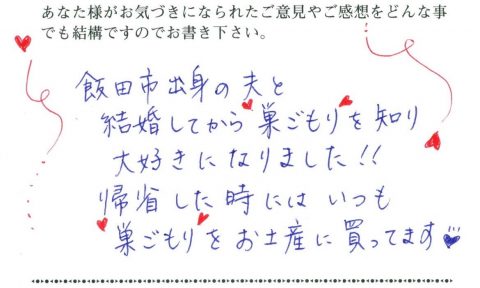 あなた様がお気づきになられたご意見やご感想をどんな事
でも結構ですのでお書き下さい。
飯田市出身の夫と
結婚してから巣ごもりを知り
大好きになりました!!
帰省した時にはいつも
巣ごもりをお土産に買ってます